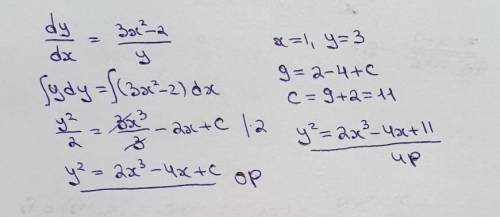 dy/dx = 3x²-2/y
∫y dy = ∫(3x²-2) dx
y²/2 = 3x³/3 - 2x + C |·2
y² = 2x³ - 4x + C op
x=1, y=3
9 = 2-4+C
C = 9+2 = 11
y² = 2x³ - 4x + 11
чр